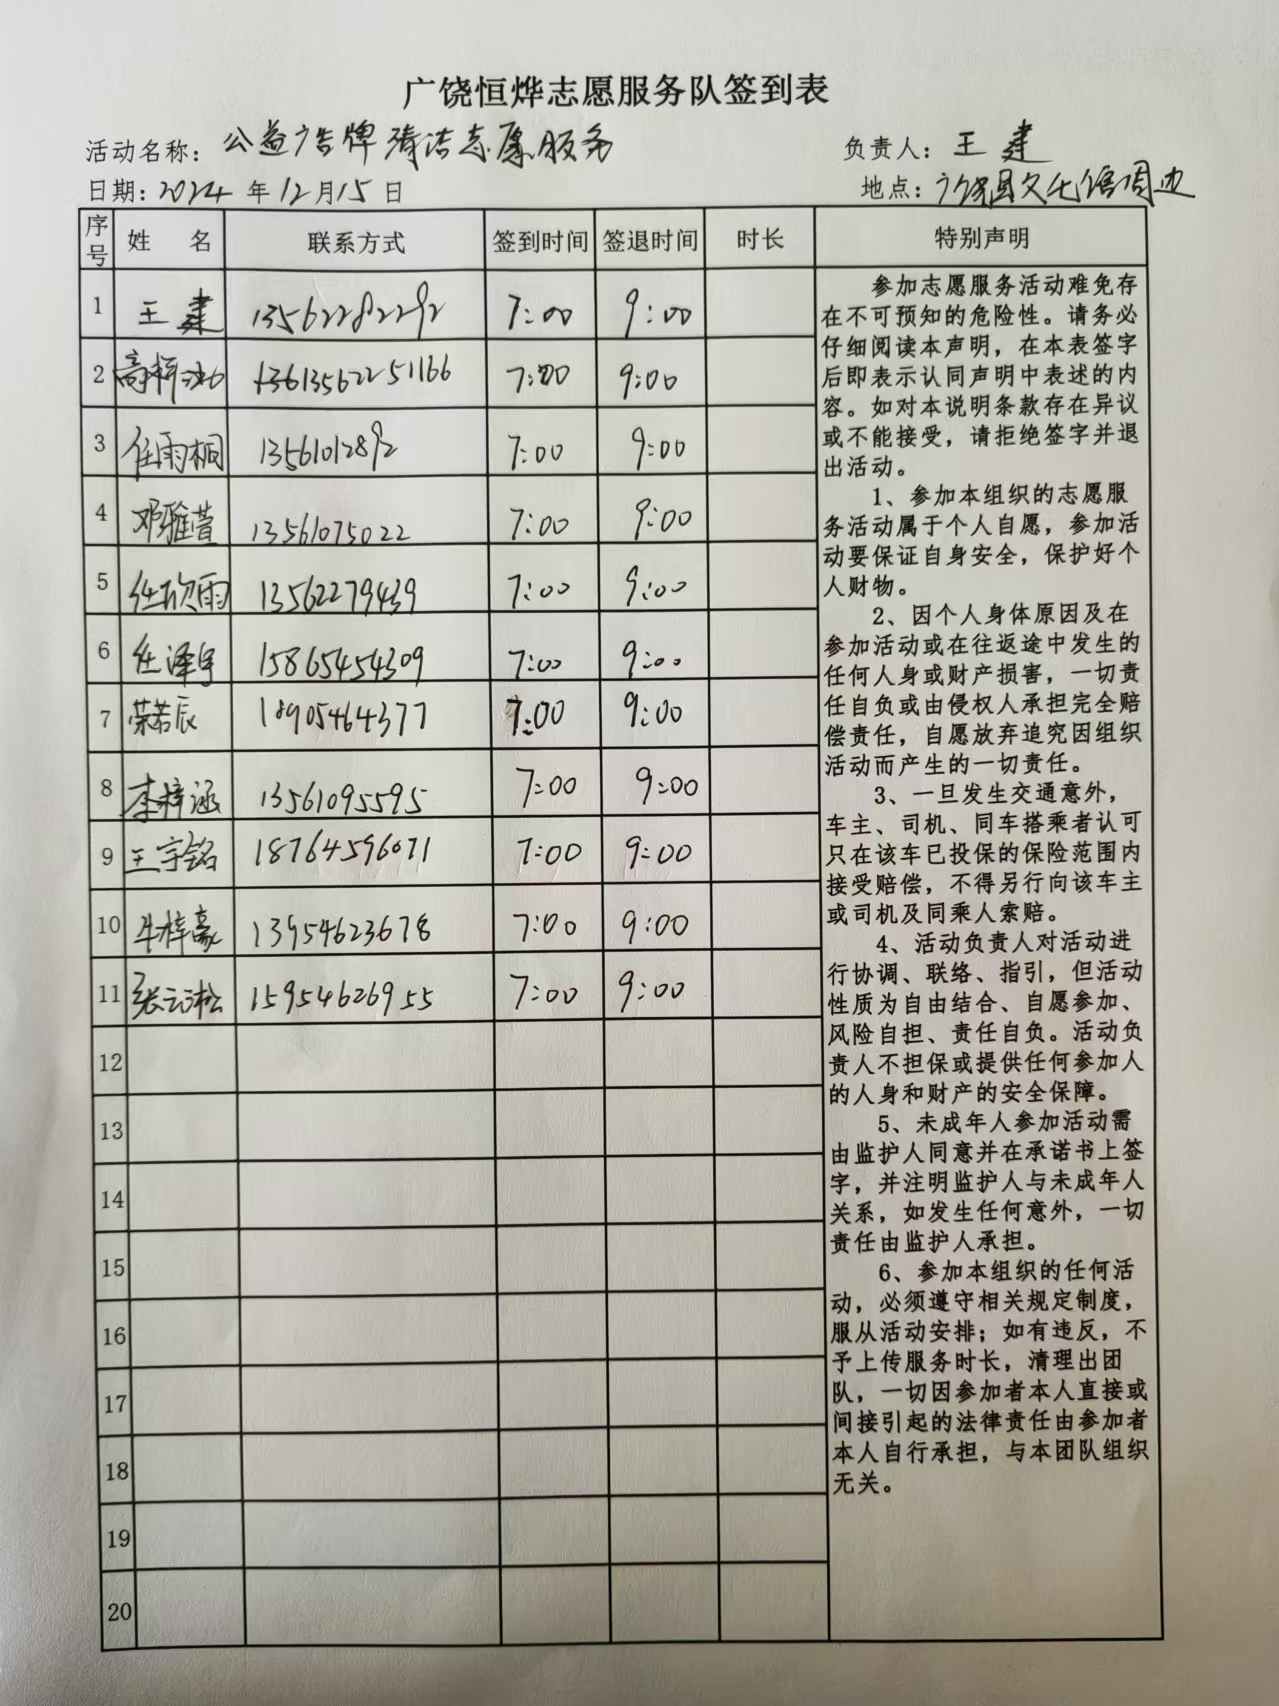 广饶恒烨志愿服务队签到表
活动名称：公益广告牌清洁志愿服务 负责人：王建
日期：2024年12月15日 地点：广饶县文化馆周边
序号 姓 名 联系方式 签到时间 签退时间 时长 特别声明
1 王建 13562282292 7:00 9:00
2 高梓 7:00 9:00
3 任雨桐 13561012892 7:00 9:00
4 邓雅萱 13561075022 7:00 9:00
5 任欣雨 13562279439 7:00 9:00
6 任泽宇 15865454309 7:00 9:00
7 荣若辰 18905464377 7:00 9:00
8 李梓涵 13561095595 7:00 9:00
9 王宇铭 18764596071 7:00 9:00
10 牛梓豪 13954623678 7:00 9:00
11 张云淞 15954626955 7:00 9:00
12
13
14
15
16
17
18
19
20
参加志愿服务活动难免存
在不可预知的危险性。请务必
仔细阅读本声明，在本表签字
后即表示认同声明中表述的内
容。如对本说明条款存在异议
或不能接受，请拒绝签字并退
出活动。
1、参加本组织的志愿服
务活动属于个人自愿，参加活
动要保证自身安全，保护好个
人财物。
2、因个人身体原因及在
参加活动或在往返途中发生的
任何人身或财产损害，一切责
任自负或由侵权人承担完全赔
偿责任，自愿放弃追究因组织
活动而产生的一切责任。
3、一旦发生交通意外，
车主、司机、同车搭乘者认可
只在该车已投保的保险范围内
接受赔偿，不得另行向该车主
或司机及同乘人索赔。
4、活动负责人对活动进
行协调、联络、指引，但活动
性质为自由结合、自愿参加、
风险自担、责任自负。活动负
责人不担保或提供任何参加人
的人身和财产的安全保障。
5、未成年人参加活动需
由监护人同意并在承诺书上签
字，并注明监护人与未成年人
关系，如发生任何意外，一切
责任由监护人承担。
6、参加本组织的任何活
动，必须遵守相关规定制度，
服从活动安排；如有违反，不
予上传服务时长，清理出团
队，一切因参加者本人直接或
间接引起的法律责任由参加者
本人自行承担，与本团队组织
无关。